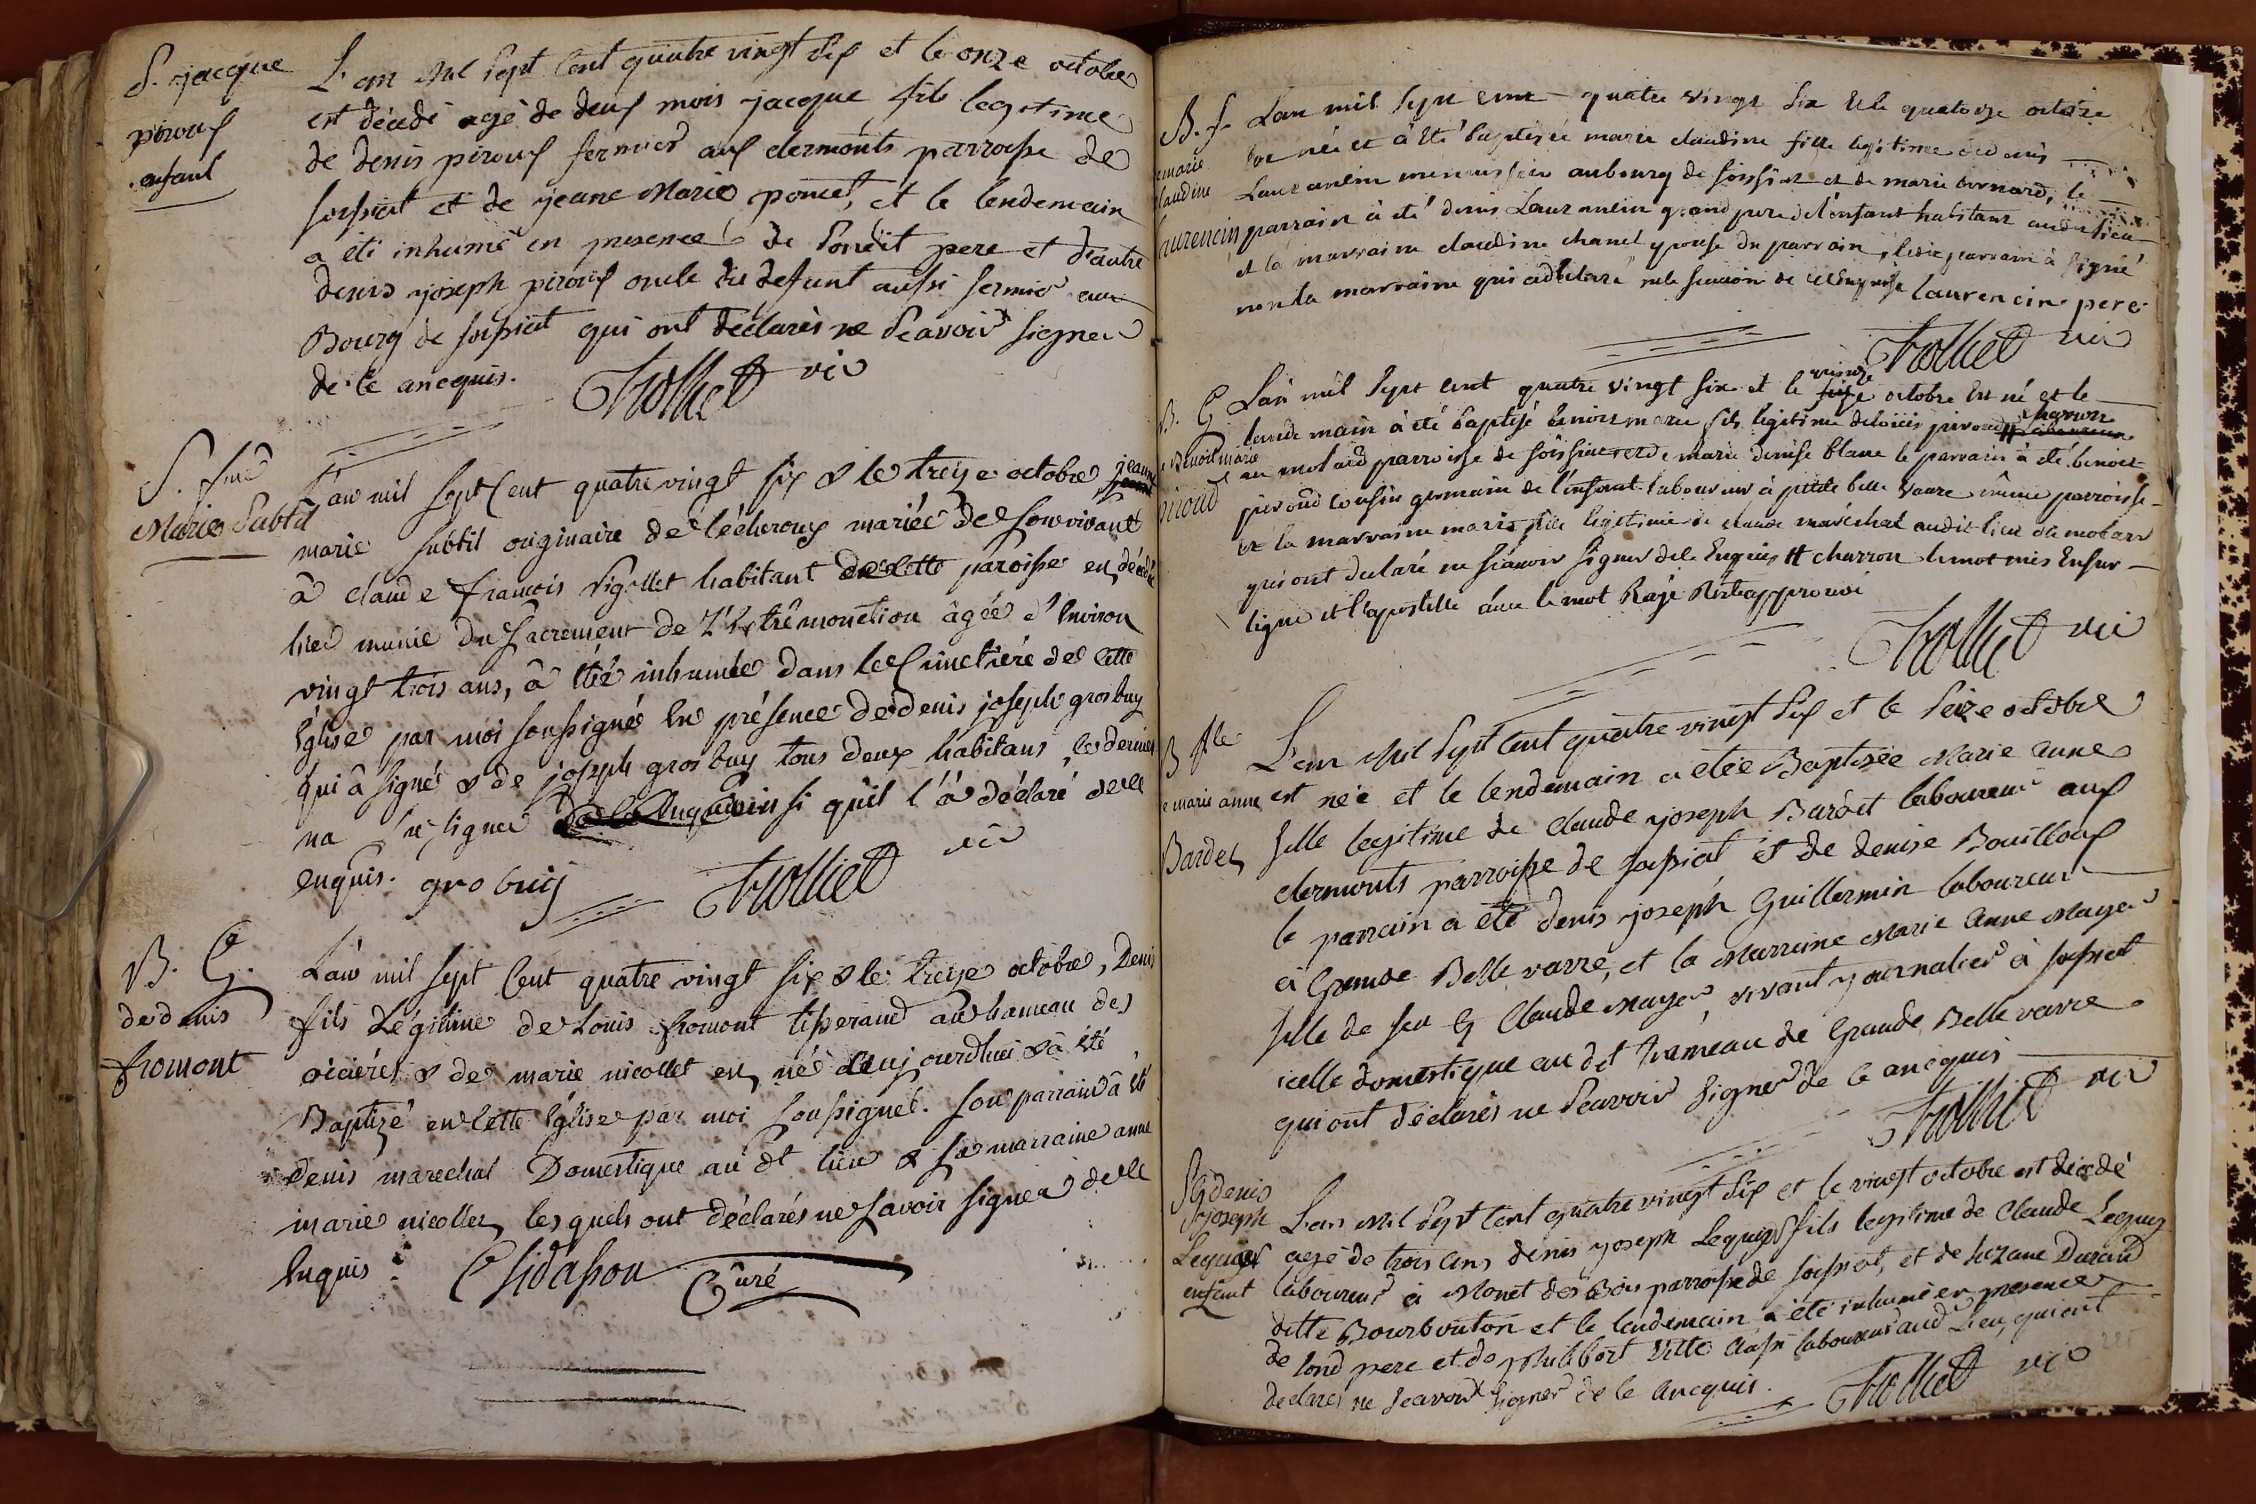 S. jacque
pirouf
enfant
L'an mil sept cent quatre vingt six et le onze octobre
est décédé agé de deux mois jacque fils legitime
de denis pirouf fermier aux clermonts parroisse de
soissiat et de jeane Marie poncet, et le lendemain
a été inhumé en presence de sondit pere et d'autre
denis joseph pirouf oncle du defunt aussi fermier au
Bourg de soissiat qui ont déclarés ne sçavoir signer
de ce ancquis. Trolliet vic
S. fme
Marie Subtil
L'an mil sept Cent quatre vingt six & le treize octobre jeanne
marie subtil originaire de lécheroux mariée de son vivant
à claude françois vigollet habitant de cette paroisse est décédée
hier munie du sacrement de L'extrêmonction âgée d'environ
vingt trois ans, à été inhumée dans le Cimetière de cette
Eglise par moi soussigné en présence de denis joseph grosbuy
qui à signé & de joseph grosbuy tous deux habitans, le dernier
na sû signer ainsi qu'il l'a déclaré de ce
enquis. grobuy Trolliet vic
B. G.
de denis
fromont
L'an mil sept Cent quatre vingt six & le treize octobre, Denis
fils Légitime de Louis fromont tisserand au hameau des
oicières & de marie nicollet est né aujourdhui & à été
Baptizé en cette Eglise par moi soussigné. son parrain à été
denis marechal Domestique au dt lieu & sa marraine anne
marie nicollet lesquels ont déclarés ne savoir signer de ce
Enquis Sidasson Curé
B. f.
marie
claudine
Laurencin
L'an mil sept cent quatre vingt six et le quatorze octobre
est née et à été baptisée marie claudine fille legitime de denis
Laurencin menuissier au bourg de soissiat et de marie bernard, le
parrain à été denis Laurencin grand pere de l'enfant habitant audit lieu
et la marraine claudine chanel epouse du parrain, ledit parrain à signé
non la marraine qui a déclaré ne le scavoir de ce enquise laurencin pere
Trolliet vic
B. G
Benoit marie
piroud
L'an mil sept cent quatre vingt six et le quinze octobre est né et le
lendemain à été baptisé benoit marie fils legitime de piroud charron
au molard parroisse de soissiat et de marie denise blanc le parrain à été benoit
piroud cousin germain de l'enfant laboureur à petite belle vavre même parroisse
et la marraine marie fille legitime de claude maréchal audit lieu du molard
qui ont declaré ne sçavoir signer de ce Enquis # charron le mot mis en sur
ligne et l'apostille avec le mot Rayé Reste approuvé
Trolliet vic
B fle
de marie anne
Bardet
L'an Mil sept cent quatre vingt six et le seize octobre
est née et le lendemain a étée Baptisée Marie Anne
fille legitime de Claude joseph Bardet laboureur aux
clermonts parroisse de soissiat et de denise Bouilloux
le parrain a été denis joseph Guillermin laboureur
à Grande Belle vavre, et la Marraine Marie Anne Mayer
fille de feu G Claude Mayer, vivant journalier à soissiat
icelle domestique au dt hameau de Grande Belle vavre
qui ont déclarés ne sçavoir signer de ce ancquis
Trolliet vic
S G denis
joseph
Lequyer
enfant
L'an Mil sept cent quatre vingt six et le vingt octobre est décédé
agé de trois ans denis joseph Lequyer fils legitime de Claude Lequyer
laboureur à Monet des Bois parroisse de soissiat, et de suzane Durand
ditte Bourbonton et le lendemain a été inhumé en presence
de sond pere et de philibert vitte aussi laboureur aud Lieu, qui ont
declarés ne sçavoir signer de ce ancquis.
Trolliet vic